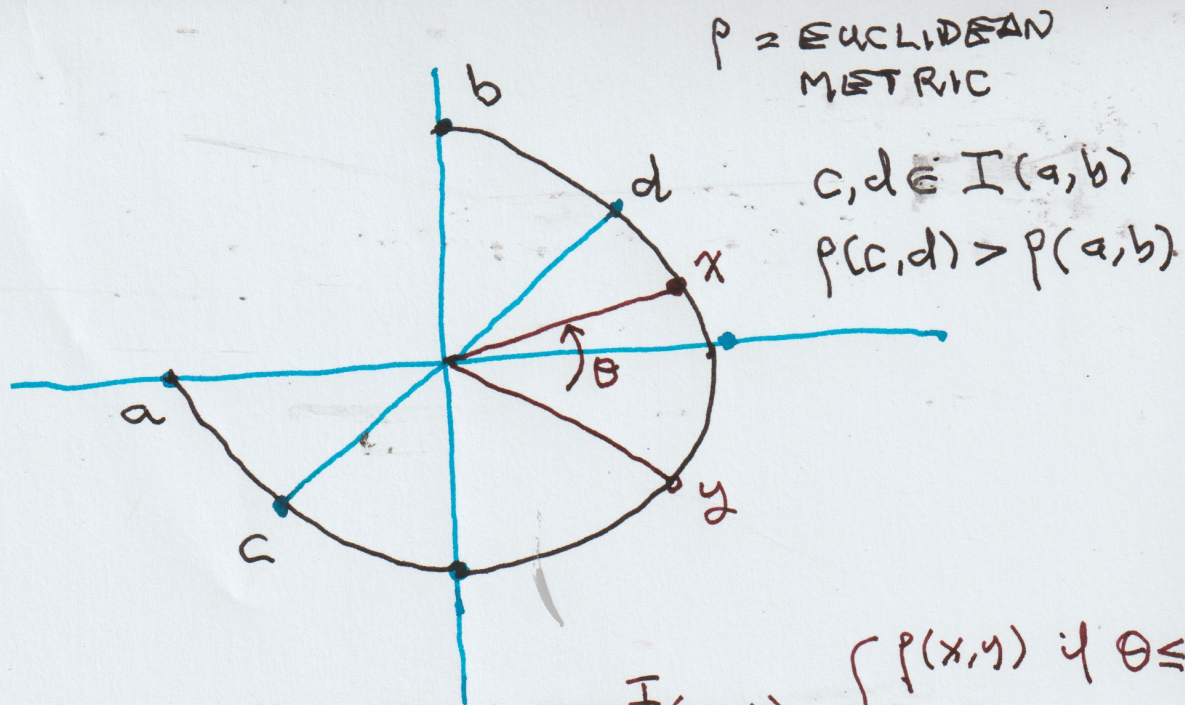 ρ = EUCLIDEAN
METRIC
b
d
c, d ∈ I(a,b)
ρ(c,d) > ρ(a,b)
x
θ
a
y
c
ρ(x,y) if θ ≤
I